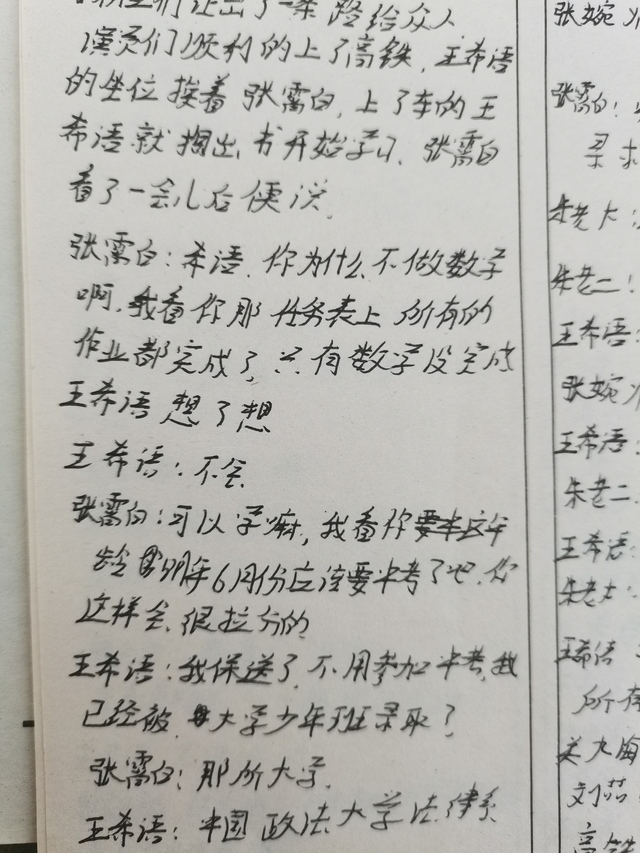 们让出了一条路给众人
演员们顺利的上了高铁,王希语
的坐位挨着张雪白,上了车的王
希语就掏出书开始学习,张雪白
看了一会儿后便说,
张雪白:希语,你为什么不做数学
啊,我看你那任务表上所有的
作业都完成了,只有数学没完成
王希语想了想
王希语:不会
张雪白:可以学嘛,我看你这年
龄明年6月份应该要中考了吧,你
这样会很拉分的
王希语:我保送了,不用参加中考,我
已经被大学少年班录取了
张雪白:那所大学,
王希语:中国政法大学法律系
张婉
张雪白:
寻求
朱老大:
朱老二:
王希语:
张婉
王希语:
朱老二
王希语:
朱老大:
王希语
所有
刘茹
高铁